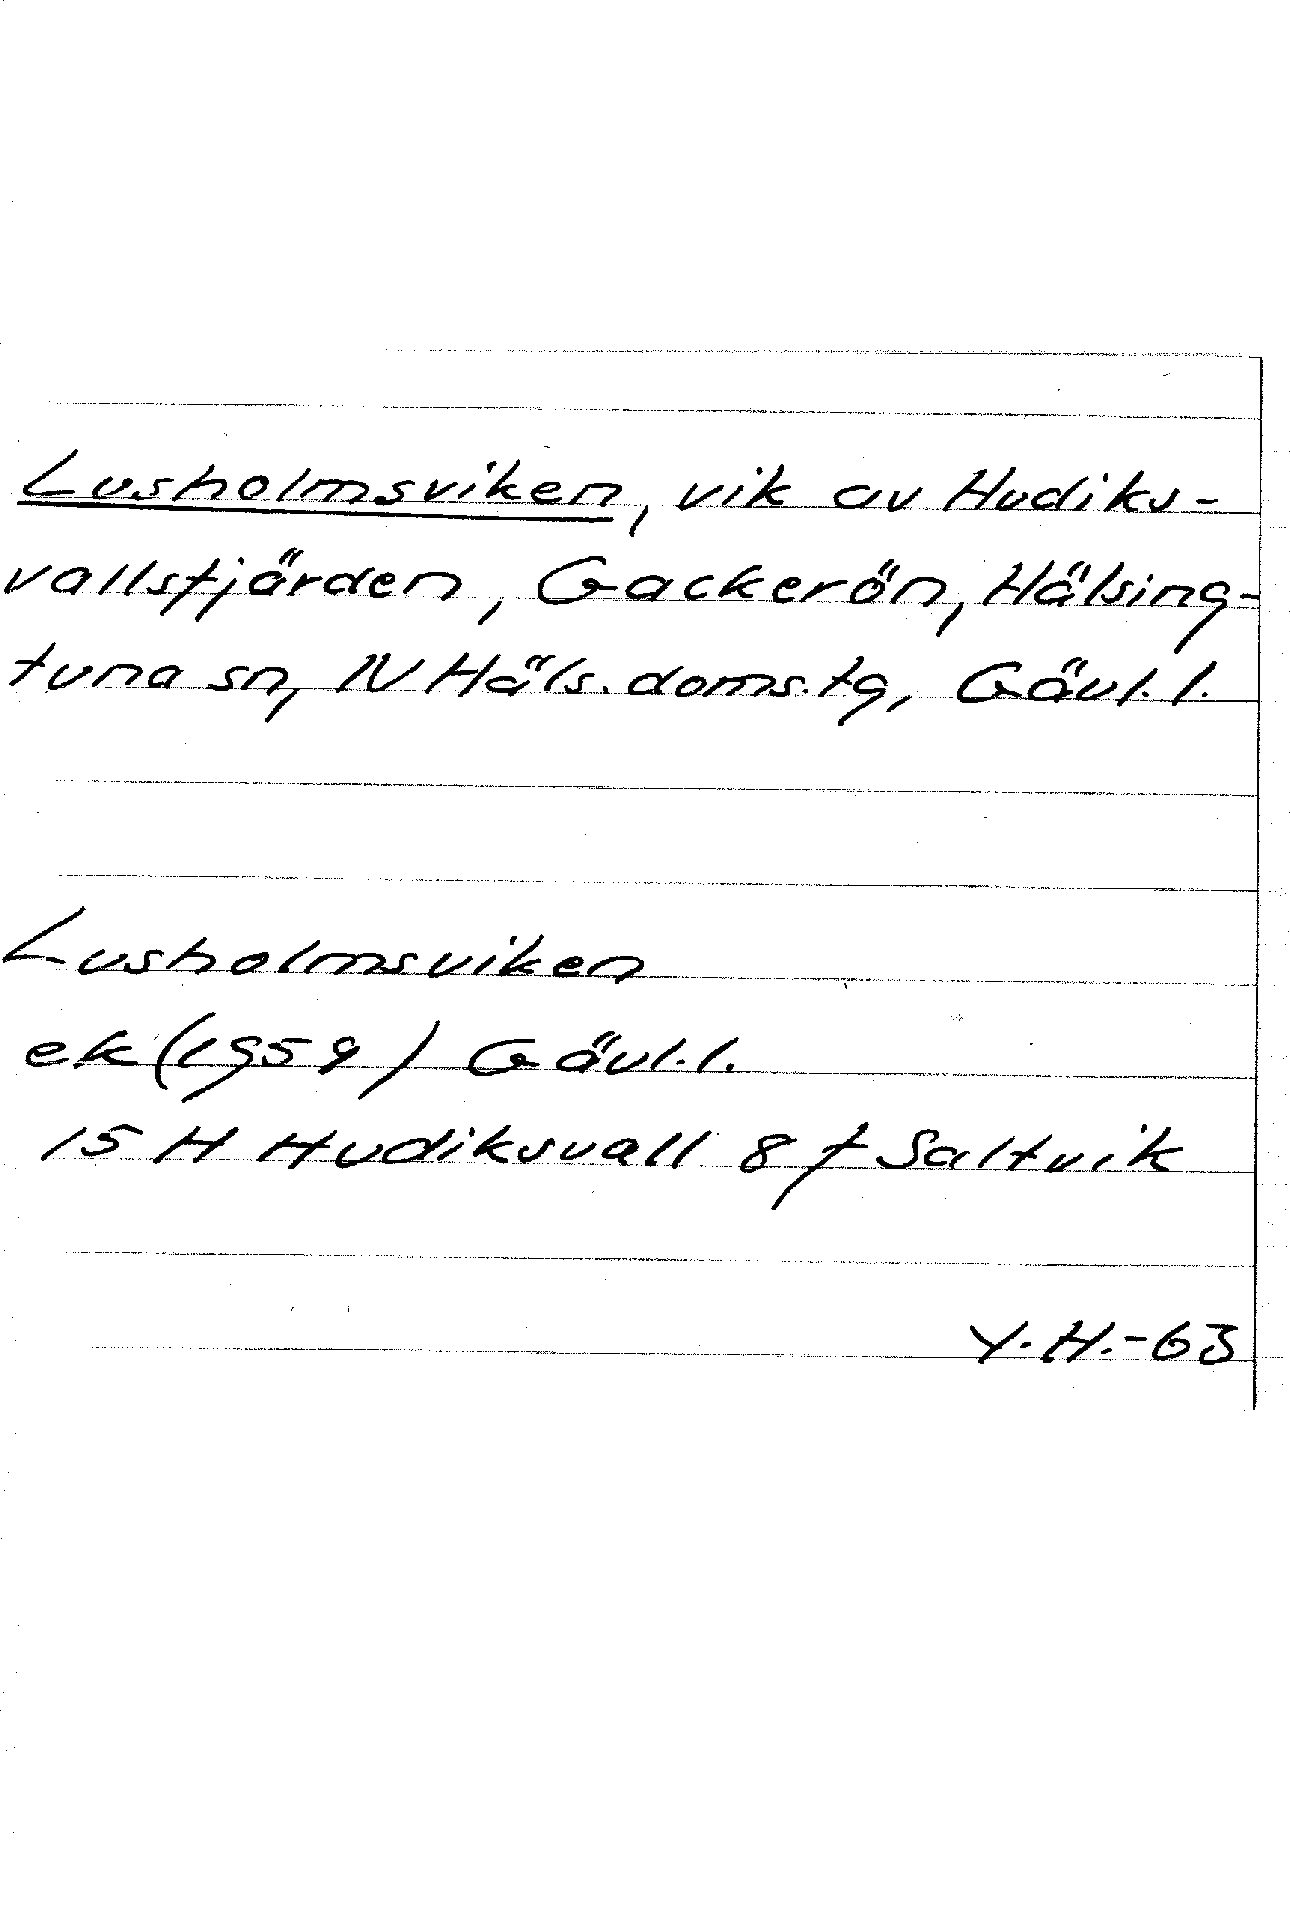 Lusholmsviken, vik av Hudiks-
vallsfjärden, Gackerön, Hälsing-
tuna sn, N Häls. doms. tg, Gävl. l.
Lusholmsviken
ek (1959) Gävl. l.
15 H Hudiksvall 8 f Saltvik
Y. H. -63